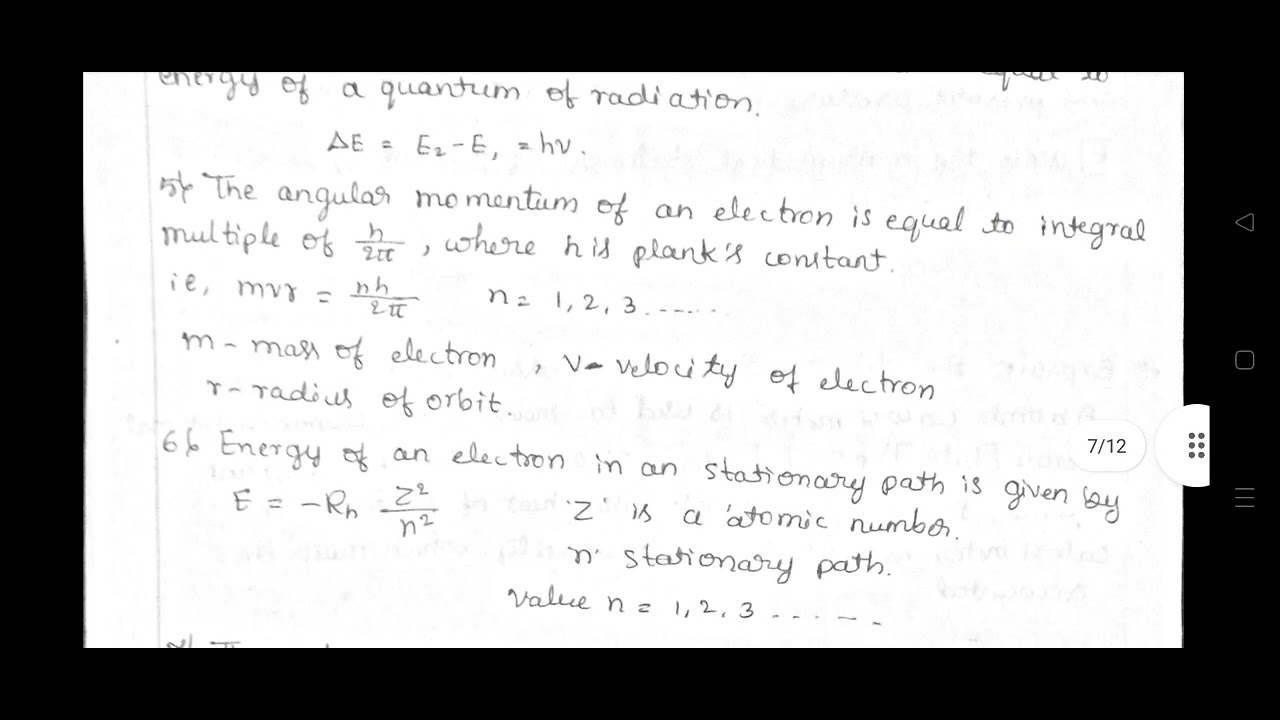 energy of a quantum of radiation.
ΔE = E₂ - E₁ = hν.
5) The angular momentum of an electron is equal to integral
multiple of h/2π, where h is plank's constant.
ie, mvr = nh/2π n = 1, 2, 3......
m - mass of electron, v - velocity of electron
r - radius of orbit.
6) Energy of an electron in an stationary path is given by
E = -Rₕ Z²/n² 'Z' is a 'atomic number.
'n' stationary path.
Value n = 1, 2, 3 ......
7/12